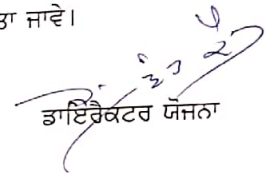 ਤਾ ਜਾਵੇ।
ਡਾਇਰੈਕਟਰ ਯੋਜਨਾ